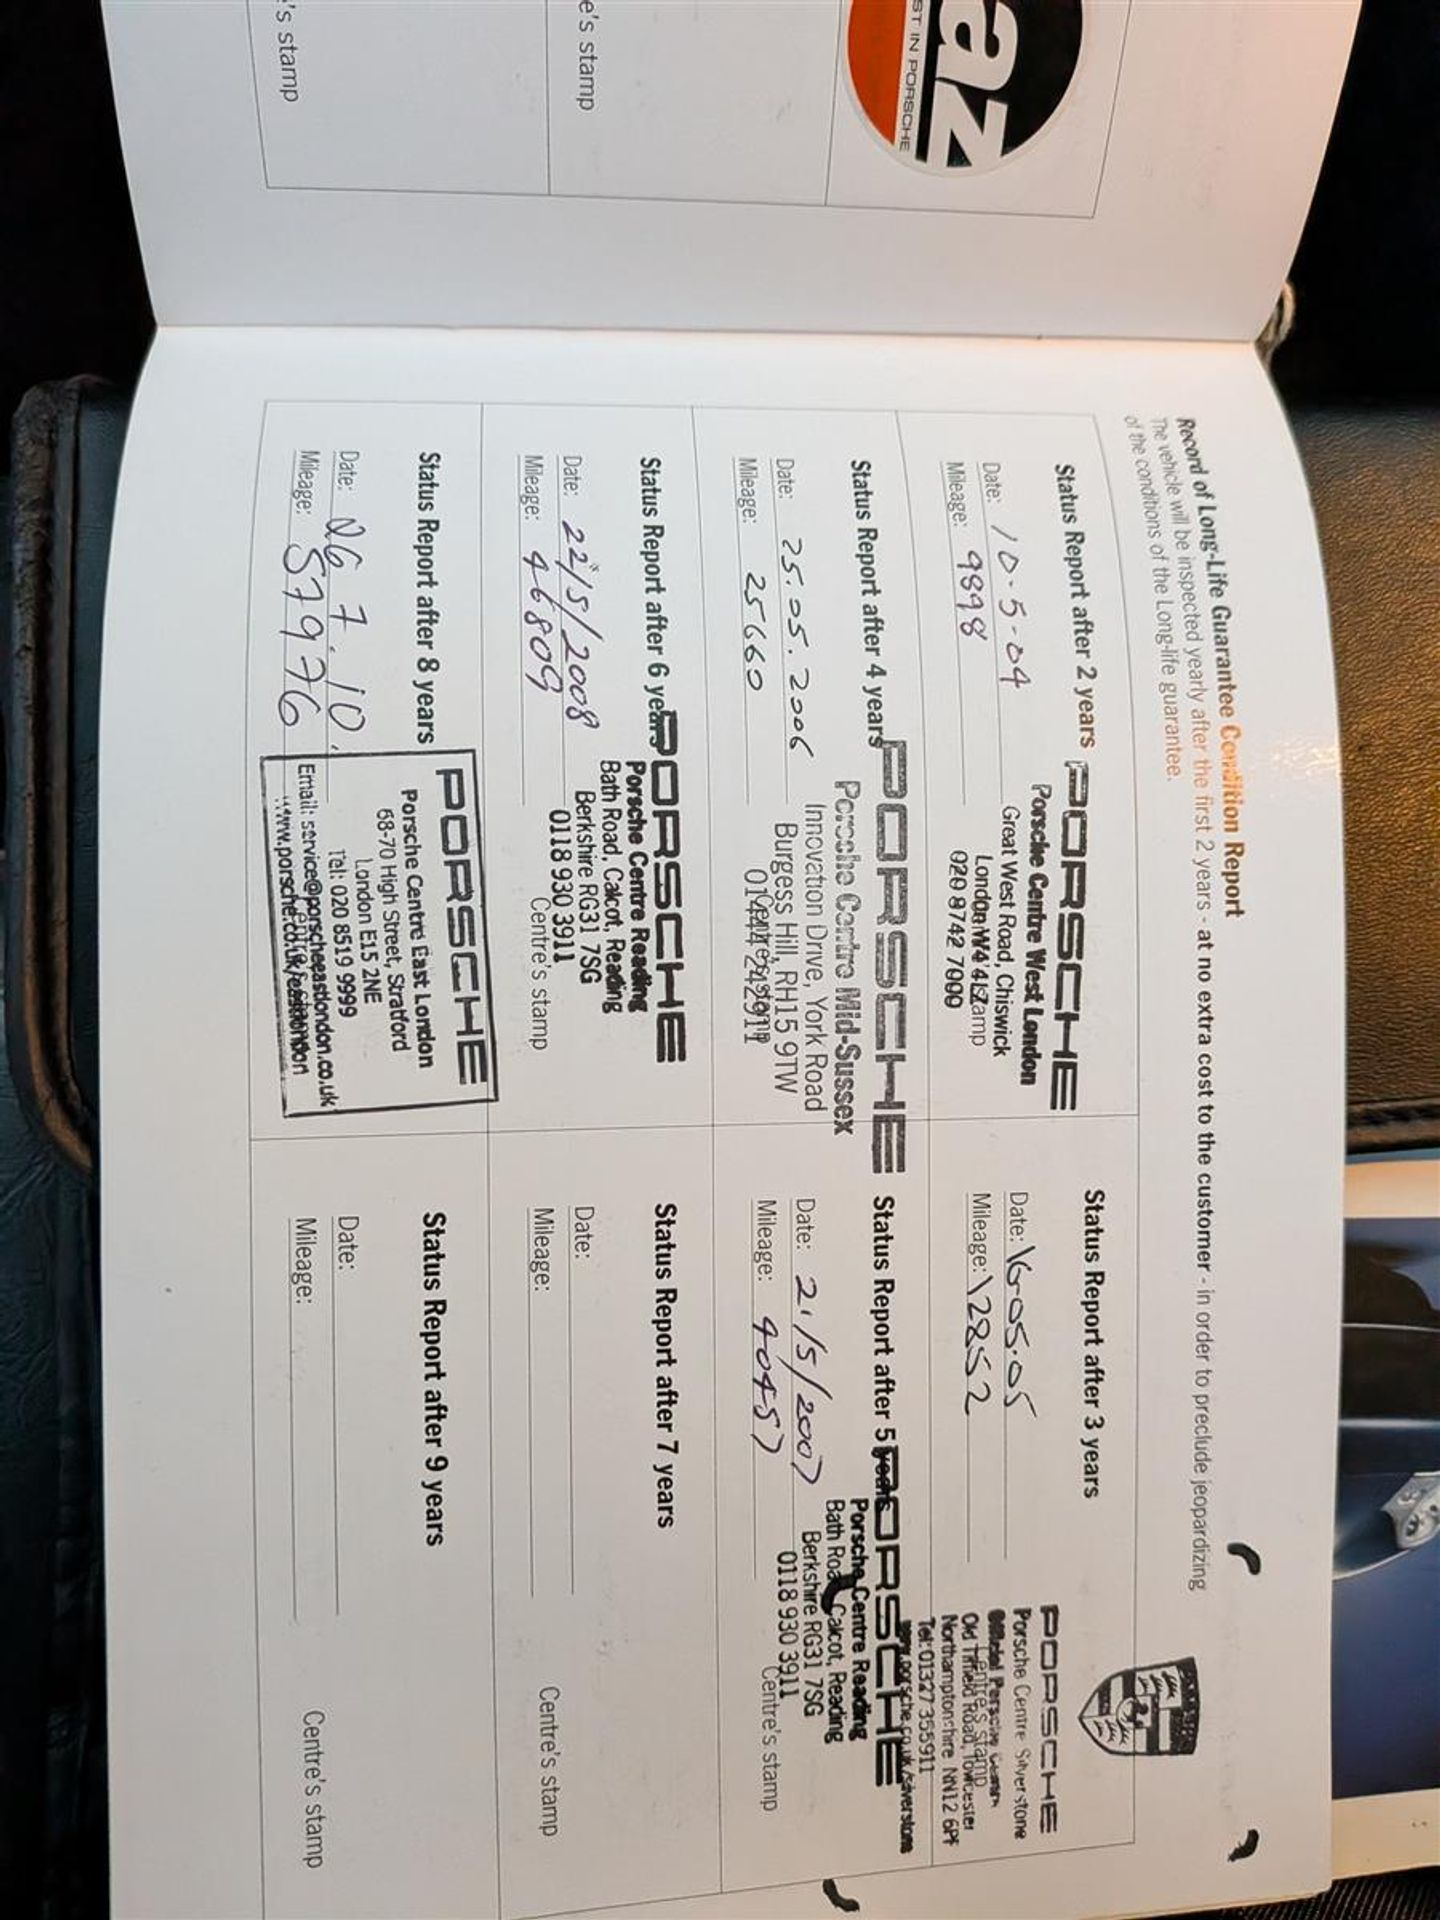 az
ST IN PORSCHE
e's stamp
e's stamp
Record of Long-Life Guarantee Condition Report
The vehicle will be inspected yearly after the first 2 years - at no extra cost to the customer - in order to preclude jeopardizing
of the conditions of the Long-life guarantee.
Status Report after 2 years
Date: 10.5.04
Mileage: 9898
PORSCHE
Porsche Centre West London
Great West Road, Chiswick
London W4
020 8742 7000
Status Report after 3 years
Date: 16.05.05
Mileage: 12852
PORSCHE
Porsche Centre Silverstone
Centre's stamp
Old Tiffield Road, Towcester
Northamptonshire NN12 6PF
Tel: 01327 355911
www.porsche.co.uk/silverstone
Status Report after 4 years
Date: 25.05.2006
Mileage: 25660
PORSCHE
Porsche Centre Mid-Sussex
Innovation Drive, York Road
Burgess Hill, RH15 9TW
01444 242911
Centre's stamp
Status Report after 5 years
Date: 21/5/2007
Mileage: 40457
PORSCHE
Porsche Centre Reading
Bath Road, Calcot, Reading
Berkshire RG31 7SG
0118 930 3911
Centre's stamp
Status Report after 6 years
Date: 22/5/2008
Mileage: 46809
PORSCHE
Porsche Centre Reading
Bath Road, Calcot, Reading
Berkshire RG31 7SG
0118 930 3911
Centre's stamp
Status Report after 7 years
Date:
Mileage:
Centre's stamp
Status Report after 8 years
Date: 26.7.10.
Mileage: 57976
PORSCHE
Porsche Centre East London
68-70 High Street, Stratford
London E15 2NE
Tel: 020 8519 9999
Email: service@porscheeastlondon.co.uk
www.porsche.co.uk/eastlondon
Status Report after 9 years
Date:
Mileage:
Centre's stamp